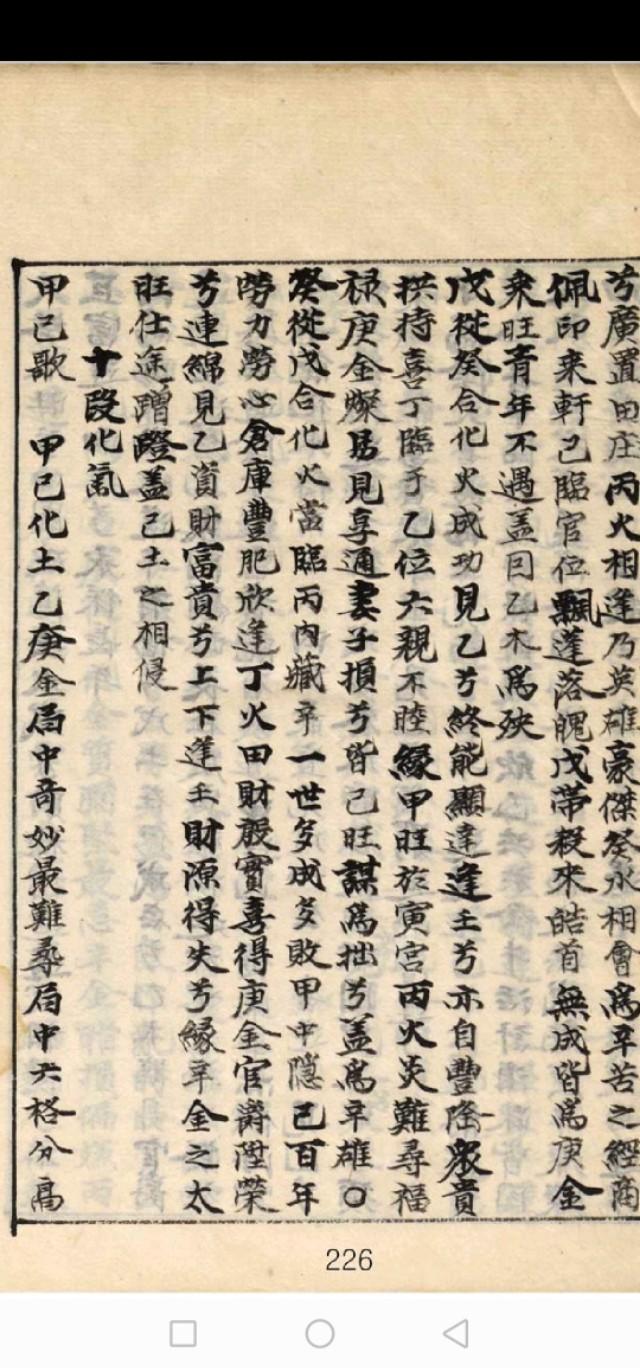 兮廣置田庄丙火相逢乃英雄豪傑癸水相會爲辛苦之經商
佩印来軒己臨官位飄蓬落魄戊帶殺來皓首無成皆爲庚金
乘旺青年不遇盖因乙木爲殃
戊從癸合化火成功見乙兮終能顯達逢壬兮亦自豐隆衆貴
拱持喜丁臨于乙位六親不睦縁甲旺於寅宮丙火炎難尋福
祿庚金燦易見享通妻子損兮皆己旺謀爲拙兮盖爲辛雄○
癸從戊合化火當臨丙内藏辛一世多成多敗甲中隠己百年
勞力勞心倉庫豐肥欣逢丁火田財殷實喜得庚金官爵陞榮
兮連綿見乙資財富貴兮上下逢壬財源得失兮縁辛金之太
旺仕途蹭蹬盖己土之相侵
十段化氣
甲己歌 甲己化土乙庚金局中奇妙最難尋局中六格分高
226